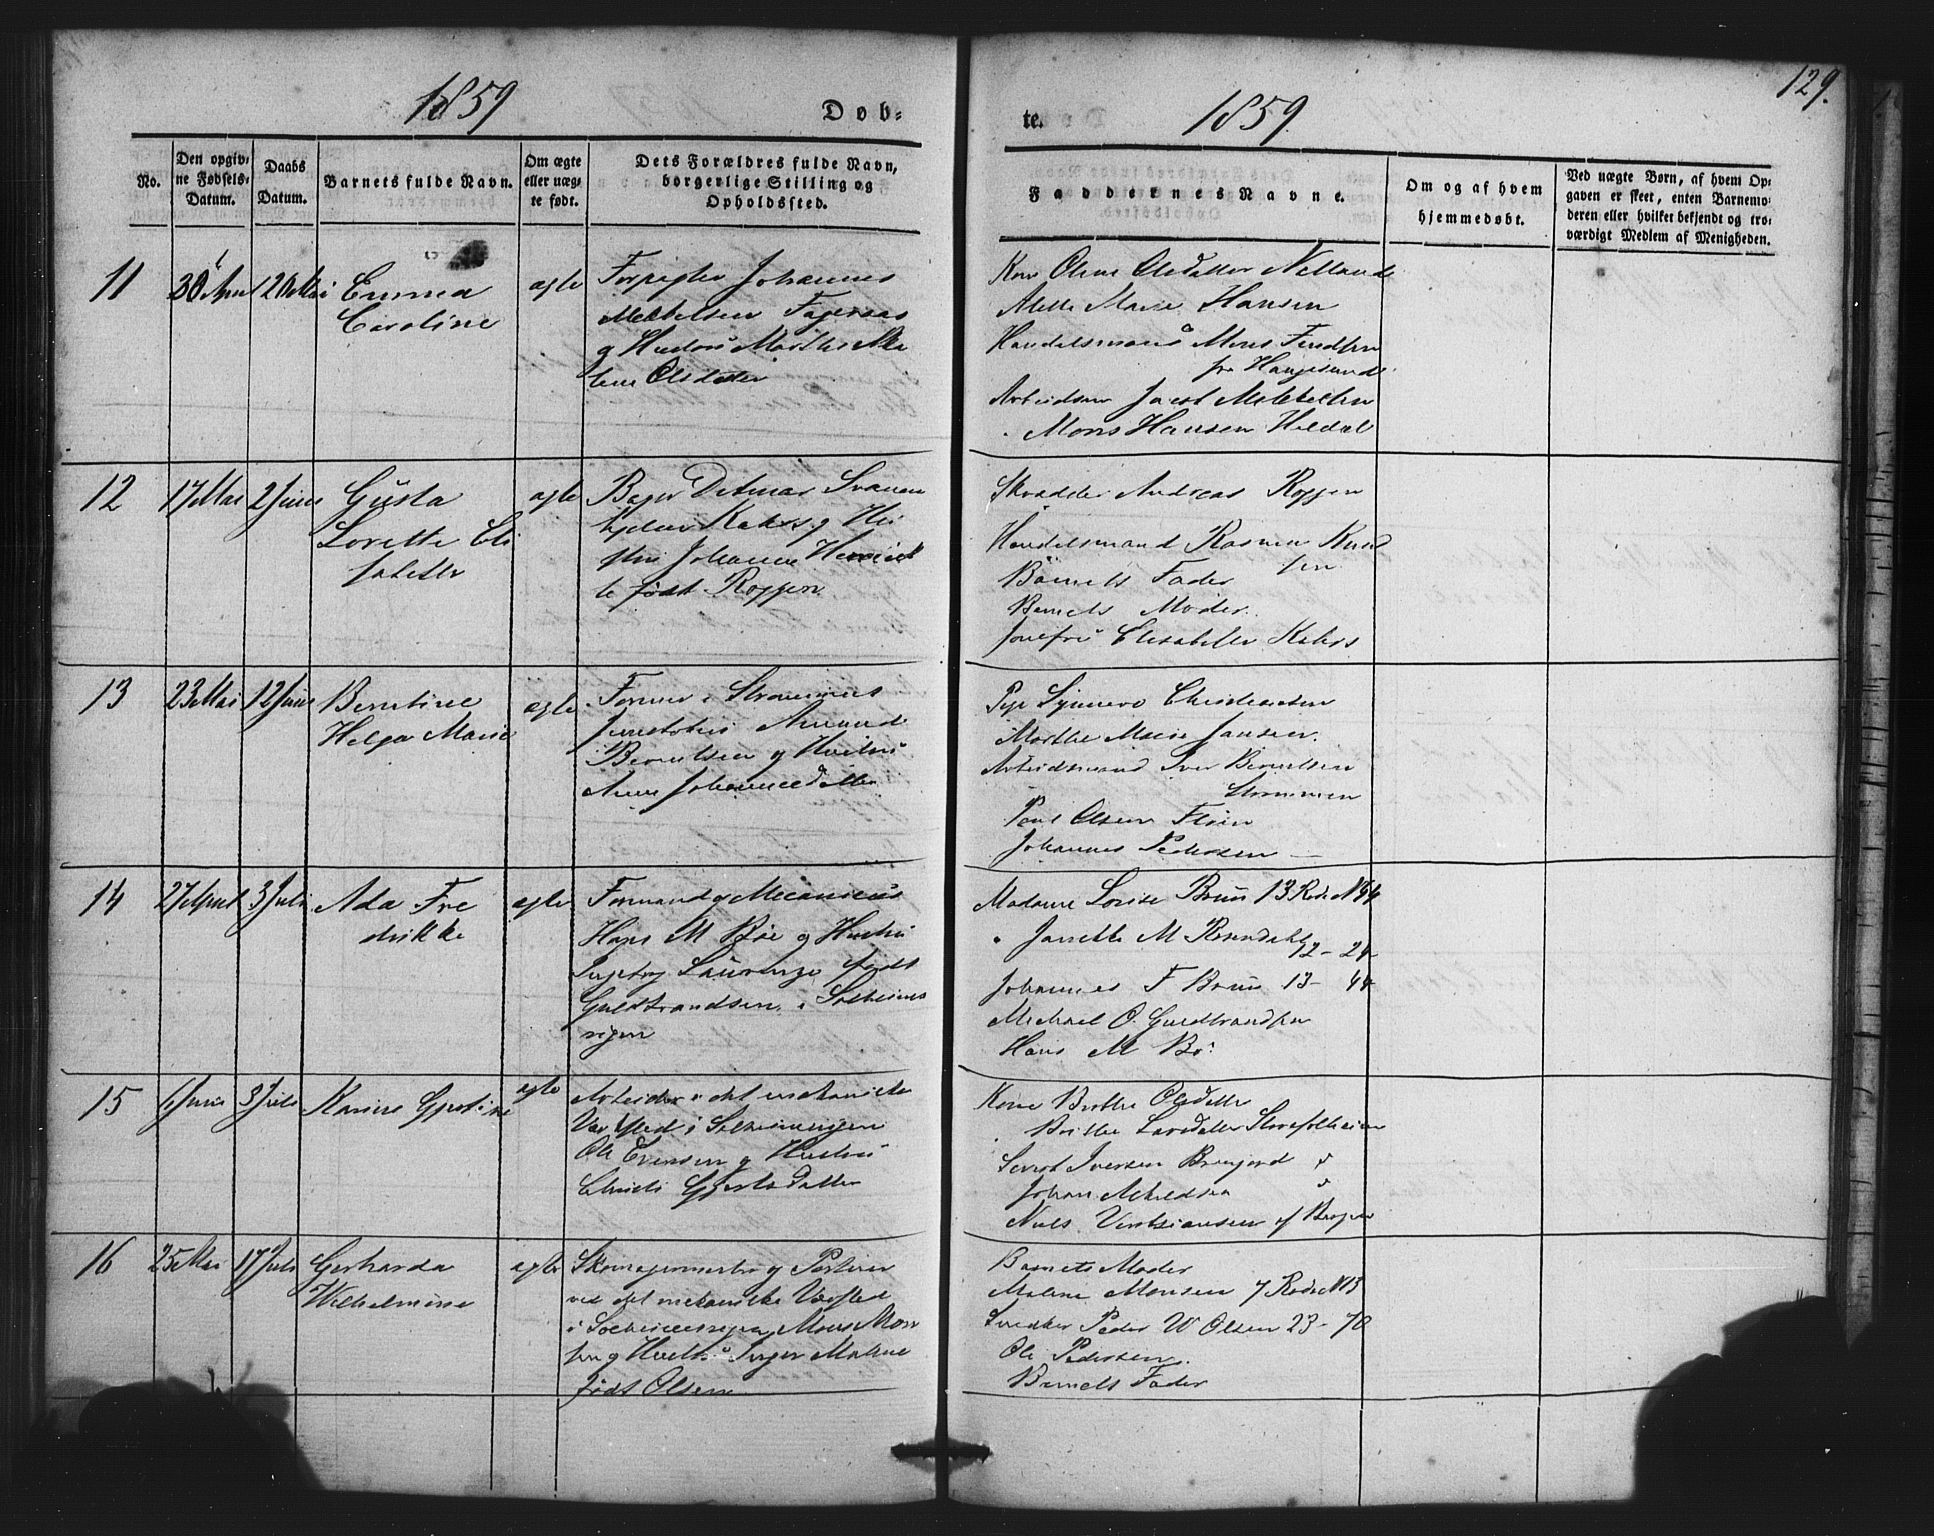 1859
Døb=
No.
Den opgiv=
ne Fødsels=
Datum.
Daabs
Datum.
Barnets fulde Navn.
Om ægte
eller uæg=
te født.
Dets Forældres fulde Navn,
borgerlige Stilling og
Opholdssted.
11
30 April
20 Mai
Emma
Caroline
ægte
Johannes
Mekkelsen Fageraas
Olsdatter
12
17 Mai
2 Juni
Gusta
Lorette Eli
sabeth
ægte
Bager Detmar
Kahrs og Hu
stru Johanne Henriet
te født Roggen
13
23 Mai
12 Juni
Berntine
Helga Marie
ægte
Former i Strømmens
Amund
Berntsen og Hustru
Anne Johannesdatter
14
27 April
3 Juli
Ada Fre
drikke
ægte
Formand og Mecanicus
Hans M Bøe og Hustru
Ingebrg Laurenze født
Guldbrandsen i Solheims
vigen
15
6 Juni
3 Juli
Karine
ægte
Arbeider i det mekaniske
Værksted i Solheimsvigen
Ole Evensen og Hustru
16
25 Mai
17 Juli
Gerharda
Wilhelmine
ægte
Skomagermester og Portner
ved det mekaniske Værksted
i Solheimsvigen Mons Mon
sen og Hustru Inger Malene
født Olsen
129.
te.
1859.
Faddernes Navne.
Om og af hvem
hjemmedøbt.
Ved uægte Børn, af hvem Op=
gaven er skeet, enten Barnemo=
deren eller hvilket bekjendt og tro=
værdigt Medlem af Menigheden.
Kone Oline Olsdatter
Marie Hansen
Handelsmand Mons
fra Haugesund
Jacob Mekkelsen
Mons Hansen Hildal
Skrædder Andreas Roggen
Handelsmand Rasmus Knud
sen
Barnets Fader
Barnets Moder.
Jomfru Elisabeth Kahrs
Pige Synneve Christensen
Marthe Marie Jansen.
Arbeidsmand Iver Berntsen
Strømmen
Poul Olsen
Johannes Pedersen
Madame Lovise Bruun 13 Rode No 44
M
12 - 24
Johannes F Bruun 13 - 44
Michael O. Guldbrandsen
Hans M Bø
Kone Brithe Olsdatter
Brithe Larsdatter
Sevrat Iversen
Johan
Niels
af Bergen
Barnets Moder
Malene Monsen 7 Rode N 13
Snedker Peder W Olsen 23 - 70
Ole Pedersen.
Barnets Fader